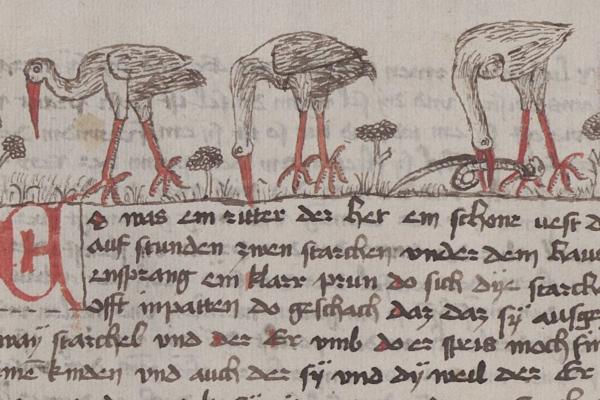 Es was ein ritter der het ein schone vest d
auf stunden zwen starchen vnder dem hau
ensprang ein klarr prun do sich dye starck
offt inpatten do geschach daz daz sy ausge
may starchel vnd der Er vmb do er speis moch fin
kinden vnd auch der sy vnd dy weil der Er